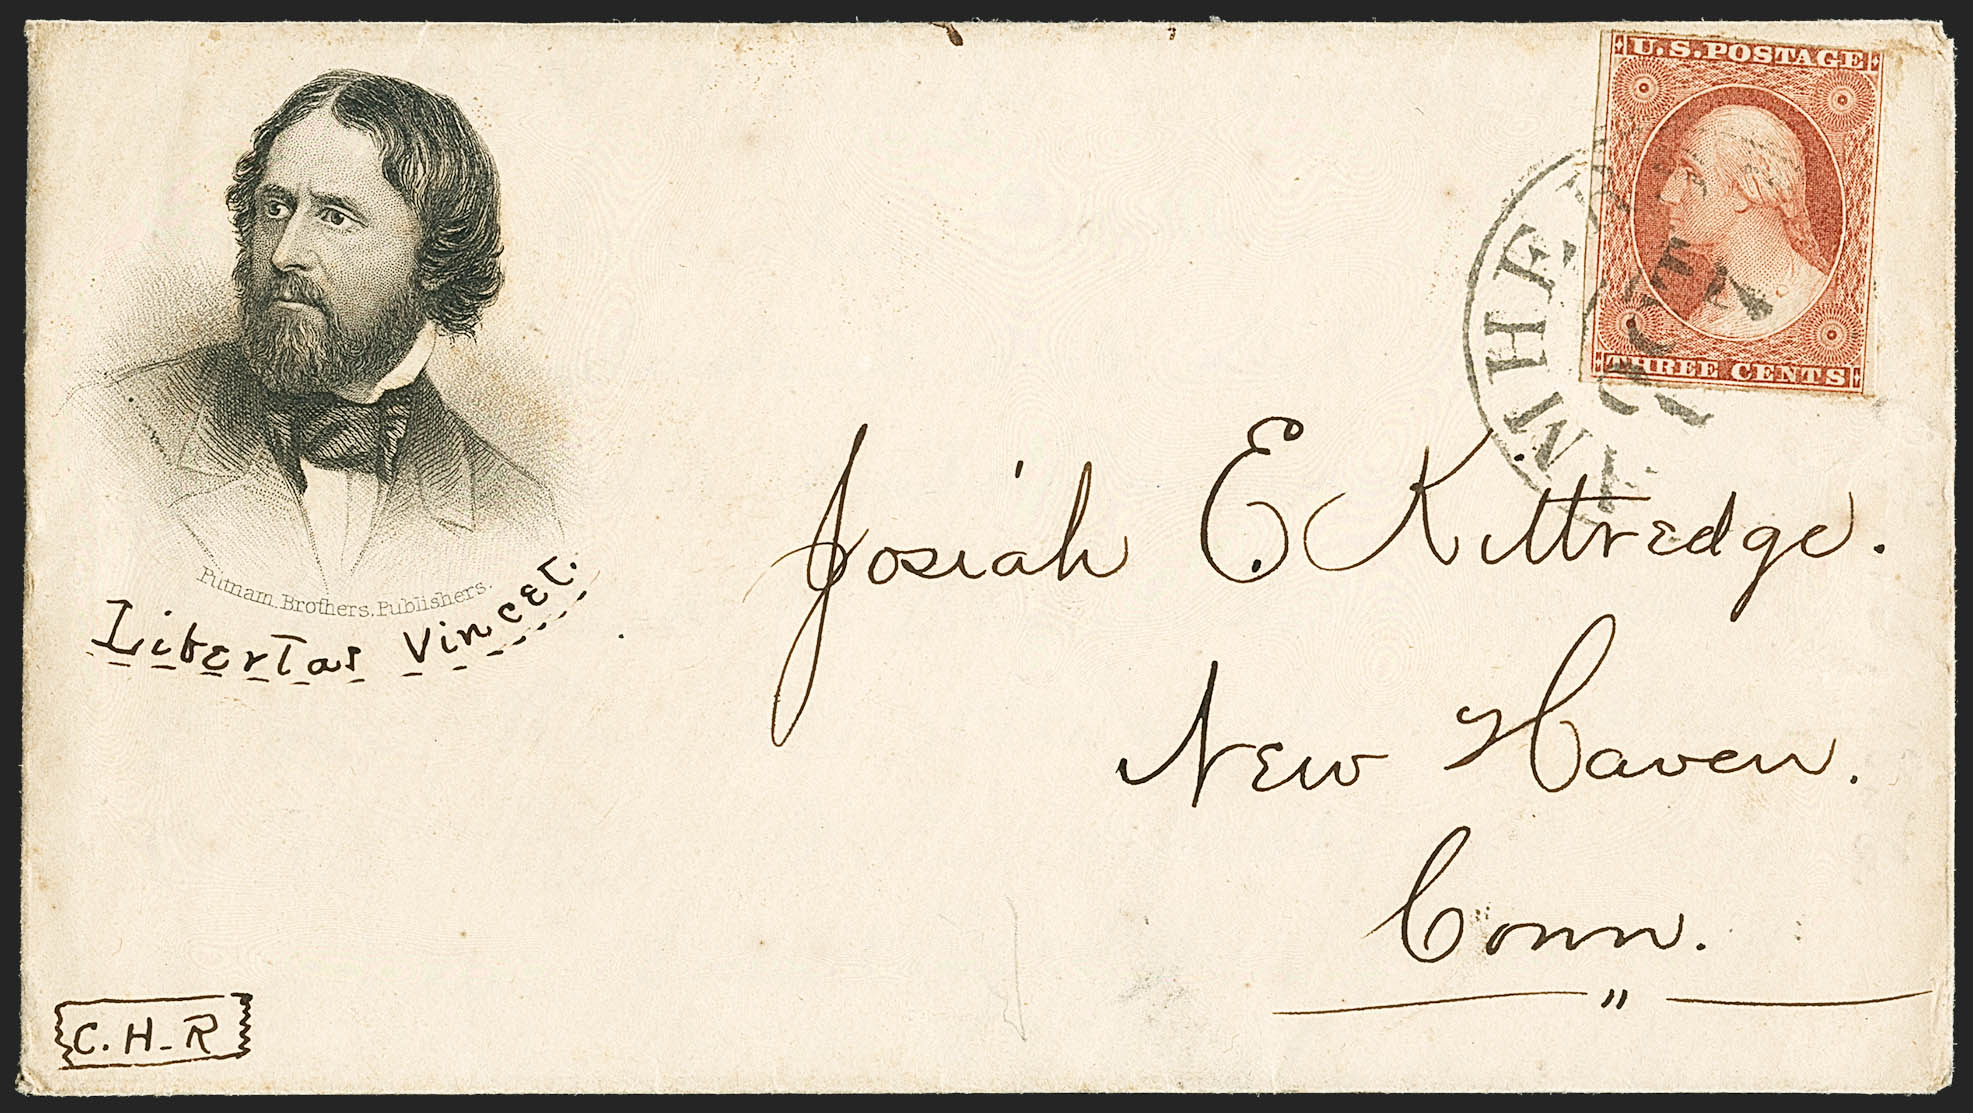 U.S. POSTAGE
THREE CENTS
Putnam Brothers, Publishers.
Libertas Vincet.
Josiah E. Kittredge.
New Haven.
Conn.
"
C. H. R